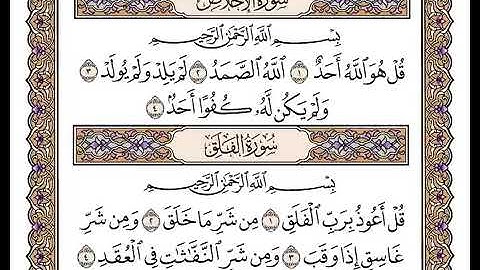 سُورَةُ الإِخْلَاصِ
بِسْمِ ٱللَّهِ ٱلرَّحْمَٰنِ ٱلرَّحِيمِ
قُلْ هُوَ ٱللَّهُ أَحَدٌ ١ ٱللَّهُ ٱلصَّمَدُ ٢ لَمْ يَلِدْ وَلَمْ يُولَدْ ٣
وَلَمْ يَكُن لَّهُۥ كُفُوًا أَحَدٌۢ ٤
سُورَةُ الفَلَقِ
بِسْمِ ٱللَّهِ ٱلرَّحْمَٰنِ ٱلرَّحِيمِ
قُلْ أَعُوذُ بِرَبِّ ٱلْفَلَقِ ١ مِن شَرِّ مَا خَلَقَ ٢ وَمِن شَرِّ
غَاسِقٍ إِذَا وَقَبَ ٣ وَمِن شَرِّ ٱلنَّفَّٰثَٰتِ فِى ٱلْعُقَدِ ٤